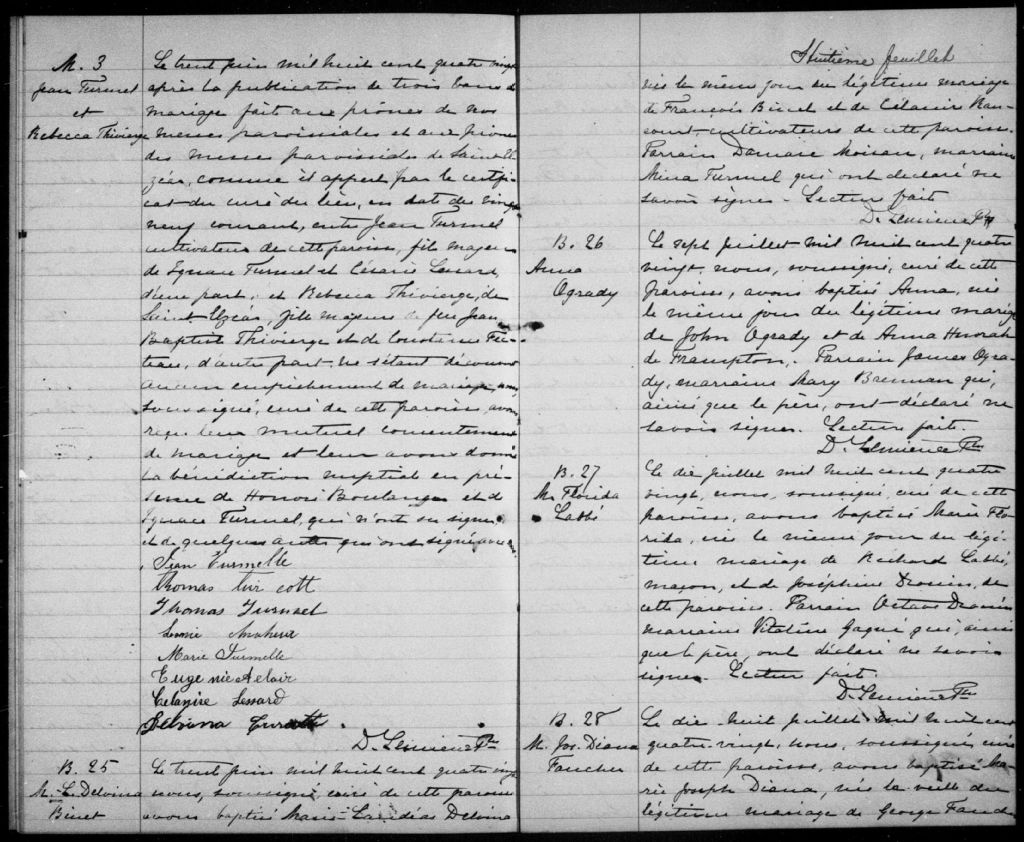 M. 3
Jean Turmel
et
Rebecca Thivierge
Le trent juin mil huit cent quatre vingt
après la publication de trois bans de
mariage fait aux prônes de nos
messes paroissiales et aux prones
des messes paroissiales de Saint El
zéar, comme il appert par le certifi-
cat du curé du lieu, en date du vingt
neuf courant, entre Jean Turmel
cultivateur de cette paroisse, fils majeur
de Ignace Turmel et Césarie Lessard,
d'une part, et Rebecca Thivierge, de
Saint Elzéar fille majeure de feu Jean
Baptiste Thivierge et de
d'autre part ne s'étant découvert
aucun empêchement de mariage, nous,
soussigné, curé de cette paroisse, avons
reçu leur mutuel consentement
de mariage et leur avons donné
la bénédiction nuptiale en pré-
sence de Honoré Boulanger et de
Ignace Turmel, qui n'ont su signer
et de quelques autres qui ont signé avec
Jean Turmelle
thomas tur cott
Thomas Turmael
Marie Turmelle
Euge nie
Celanire Lessard
Delvina
D. Lemieux Ptre
B. 25
M. L. Delvina
Binet
Le trent juin mil huit cent quatre vingt
nous, soussigné, curé de cette paroisse
avons baptisé Marie Delvina
Huitième feuillet
née le même jour du légitime mariage
de François Binet et de Célanire Ran-
court cultivateurs de cette paroisse.
Parrain Damase Moisan, marraine
Mina Turmel qui ont déclaré ne
savoir signer. Lecture fait
D. Lemieux Ptre
B. 26
Anna
Ogrady
Le sept juillet mil huit cent quatre
vingt, nous, soussigné, curé de cette
paroisse, avons baptisé Anna, née
le même jour du légitime mariage
de John Ogrady et de Anna
de Frampton. Parrain James Ogra-
dy, marraine Mary Brennan qui,
ainsi que le père, ont déclaré ne
savoir signer. Lecture fait.
D. Lemieux Ptre
B. 27
M. Florida
Labbé
Le dix juillet mil huit cent quatre
vingt, nous, soussigné, curé de cette
paroisse, avons baptisé Marie Flo-
rida, née le même jour du légi-
time mariage de Richard Labbé,
maçon, et de Joséphine Drouin, de
cette paroisse. Parrain Octave Drouin
marraine Vitaline Gagné qui, ainsi
que le père, ont déclaré ne savoir
signer. Lecture fait.
D. Lemieux Ptre
B. 28
M. Jos. Diana
Faucher
Le dix huit juillet mil huit cent
quatre-vingt, nous, soussigné, curé
de cette paroisse, avons baptisé Ma-
rie Joseph Diana, née la veille du
légitime mariage de George Fauch